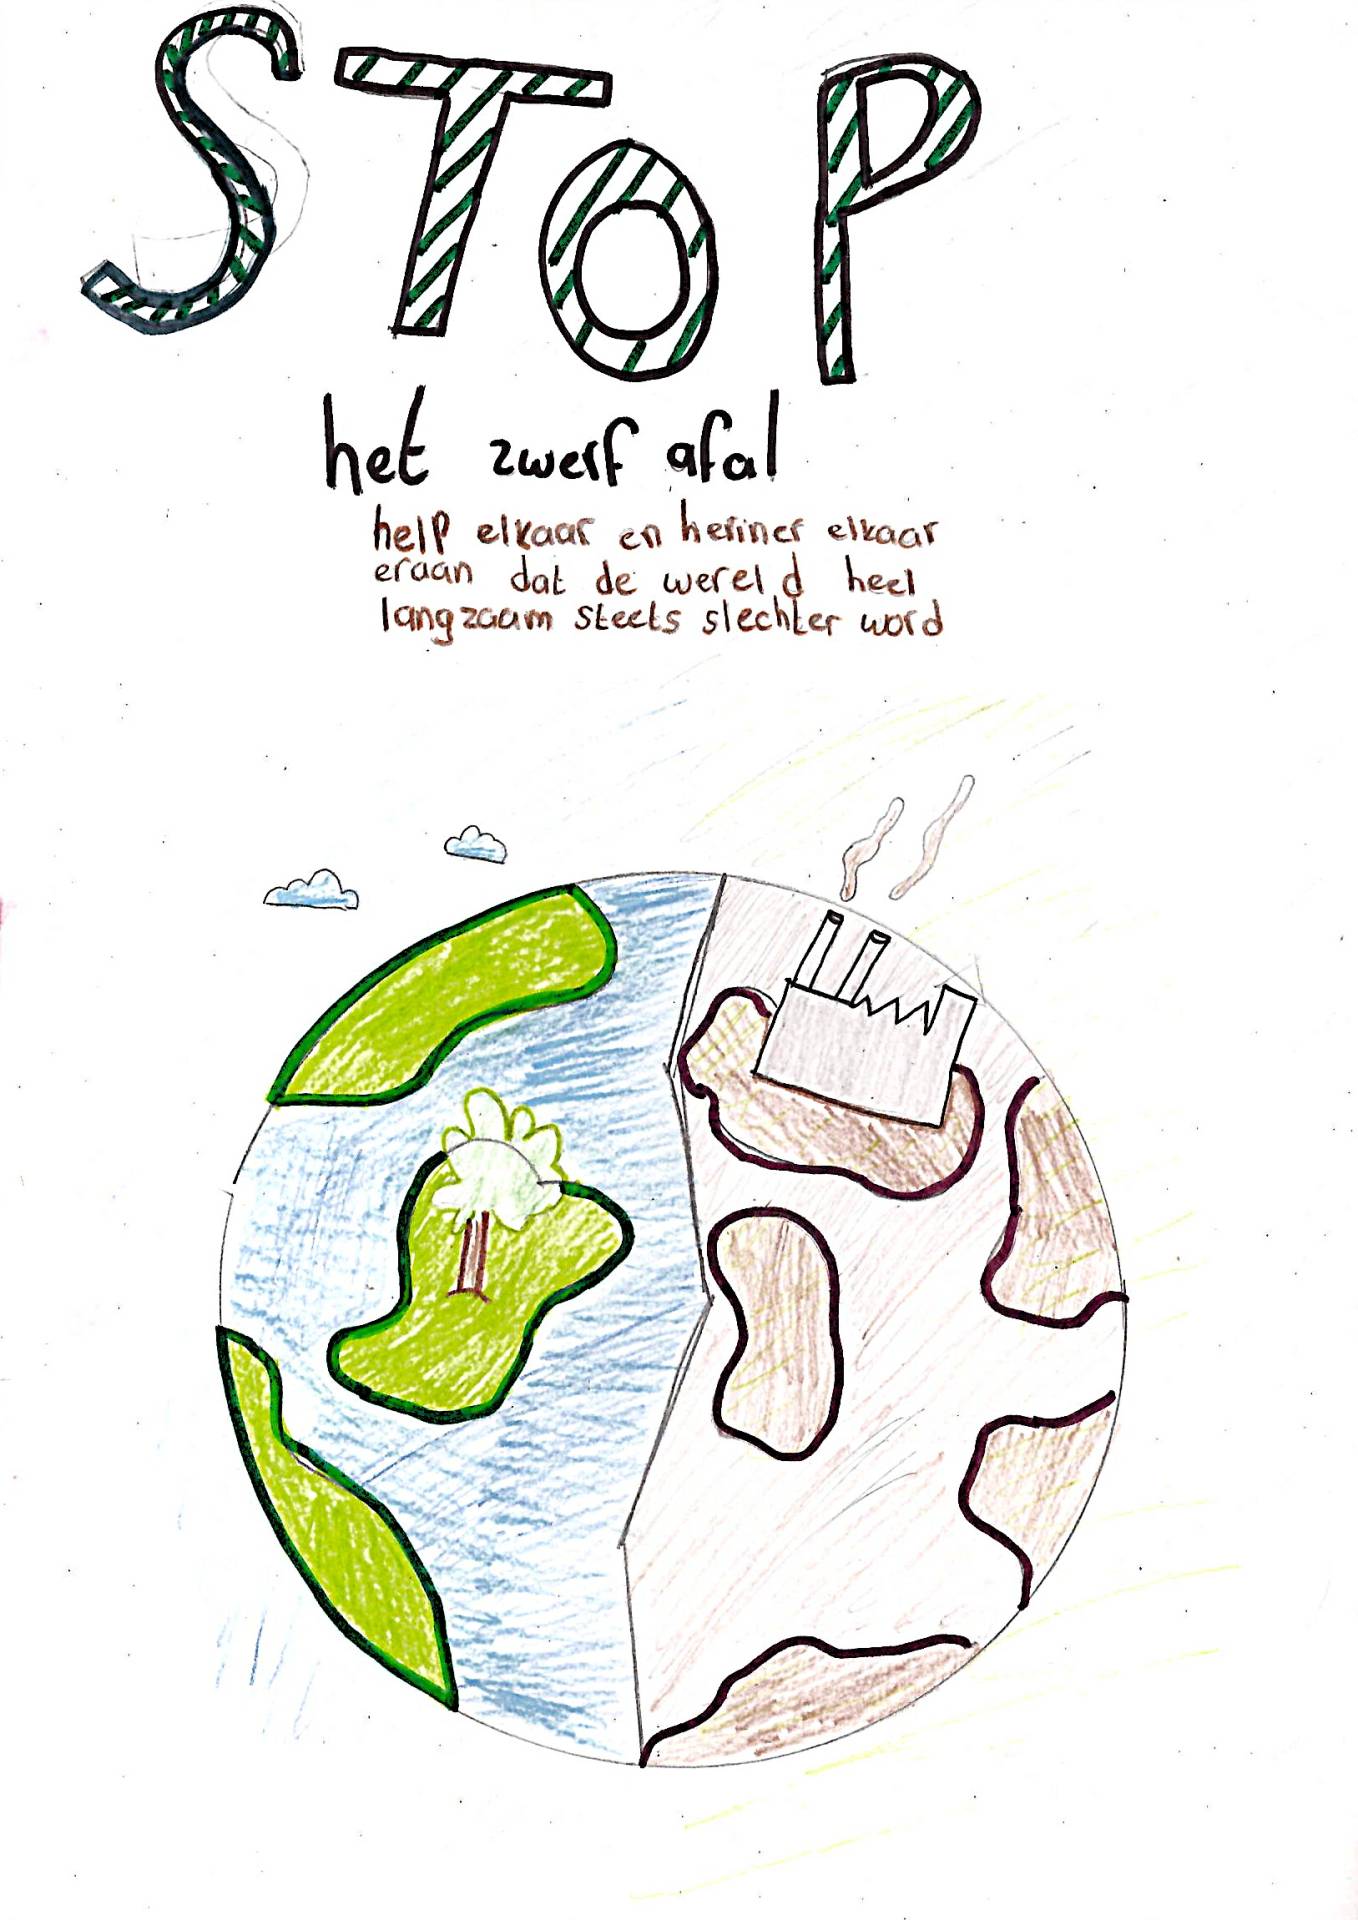 STOP
het zwerf afal
help elkaar en heriner elkaar
eraan dat de wereld heel
langzaam steets slechter word